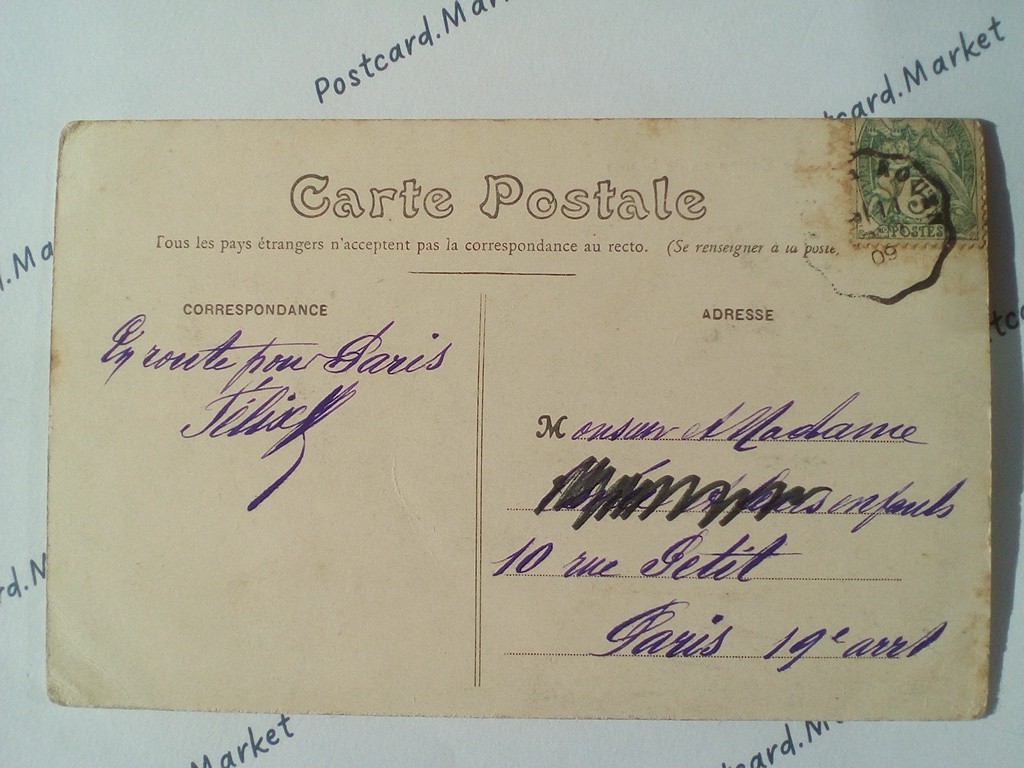 Postcard.Market
Carte Postale
Tous les pays étrangers n'acceptent pas la correspondance au recto. (Se renseigner à la poste,
ROUEN
5
POSTES
09
CORRESPONDANCE
ADRESSE
En route pour Paris
Félix
Monsieur et Madame
et leurs enfants
10 rue Petit
Paris 19e arrt
Postcard.Market